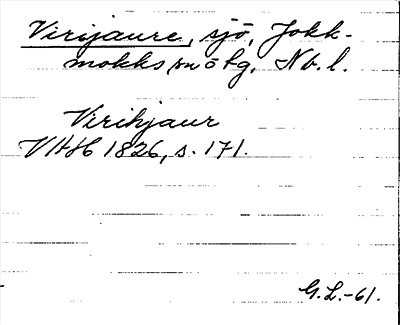 Virijaure, sjö, Jokk-
mokks sn o kg, Nb. l.
Virihjaur
VAH 1826, s. 171.
G.L.-61.